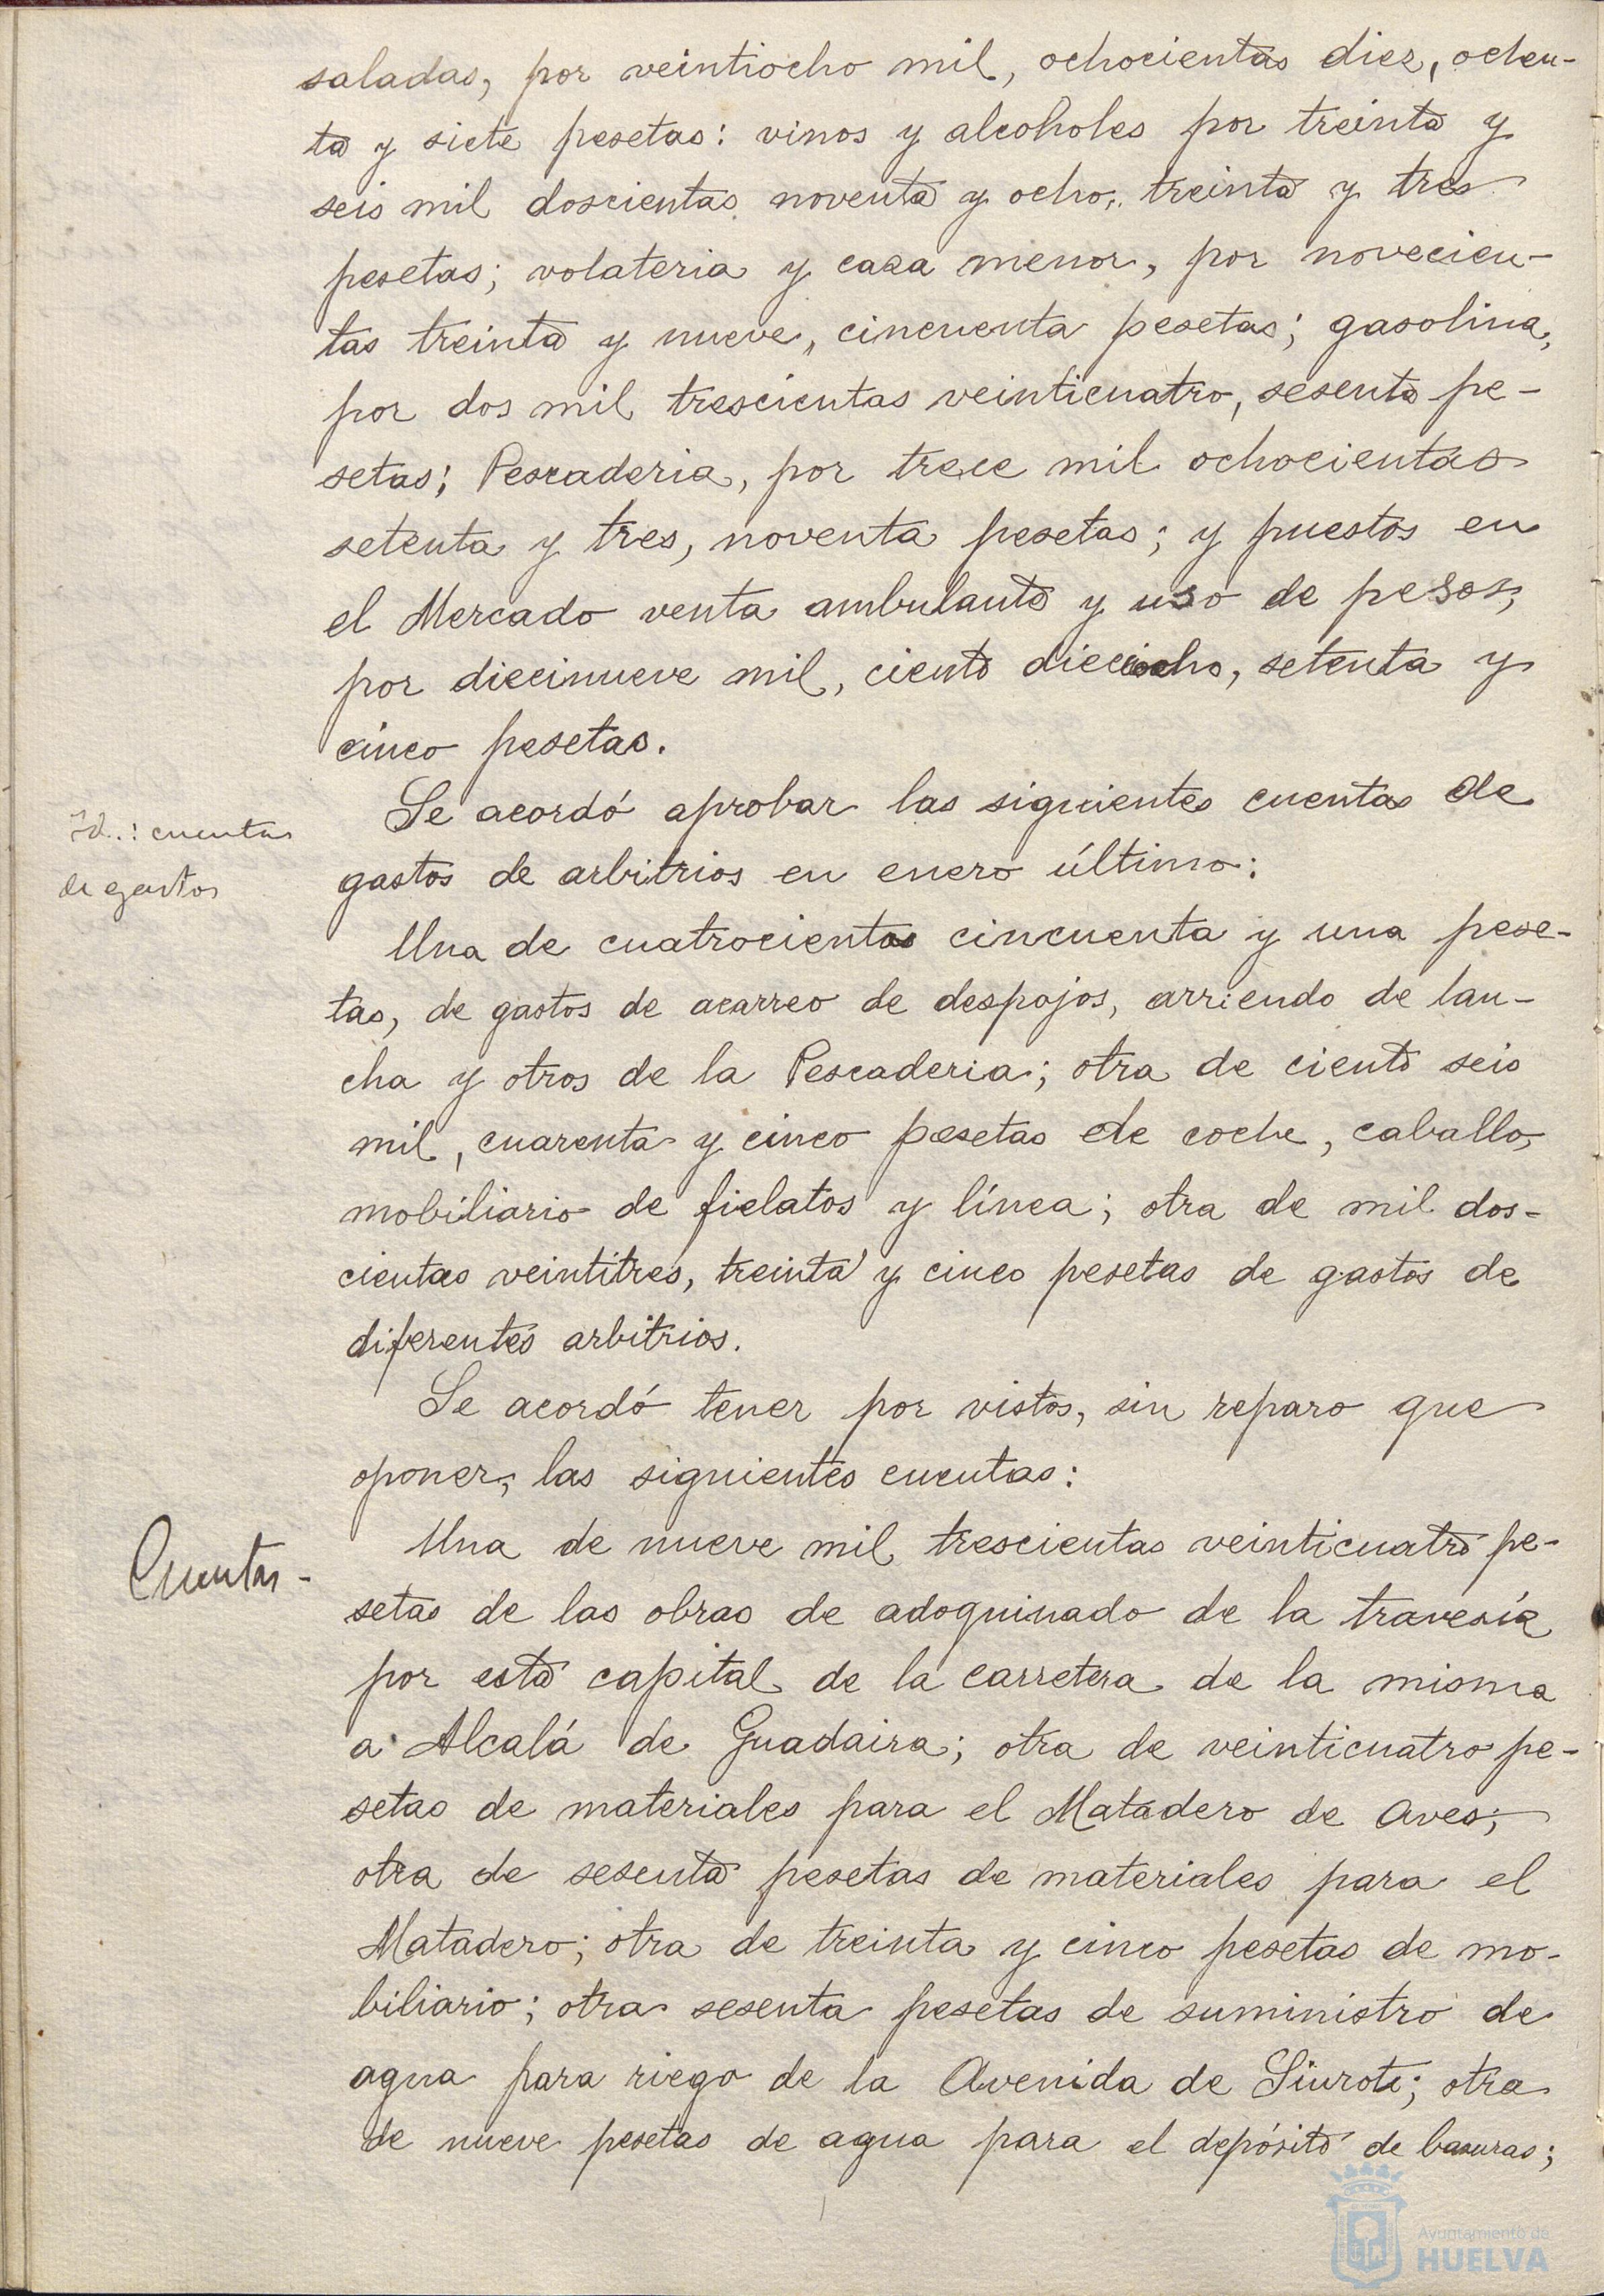 saladas, por veintiocho mil, ochocientas diez, ochen-
ta y siete pesetas: vinos y alcoholes por treinta y
seis mil doscientas noventa y ocho, treinta y tres
pesetas; volateria y caza menor, por novecien-
tas treinta y nueve, cincuenta pesetas; gasolina,
por dos mil trescientas veinticuatro, sesenta pe-
setas; Pescaderia, por trece mil ochocientas
setenta y tres, noventa pesetas; y puestos en
el Mercado venta ambulante y uso de pesos,
por diecinueve mil, ciento dieciocho, setenta y
cinco pesetas.
Id.: cuentas
de gastos
Se acordó aprobar las siguientes cuentas de
gastos de arbitrios en enero último:
Una de cuatrocientas cincuenta y una pese-
tas, de gastos de acarreo de despojos, arriendo de lan-
cha y otros de la Pescaderia; otra de ciento seis
mil, cuarenta y cinco pesetas de coche, caballo,
mobiliario de fielatos y línea; otra de mil dos-
cientas veintitres, treinta y cinco pesetas de gastos de
diferentes arbitrios.
Se acordó tener por vistos, sin reparo que
oponer, las siguientes cuentas:
Cuentas -
Una de nueve mil trescientas veinticuatro pe-
setas de las obras de adoquinado de la travesía
por esta capital de la carretera de la misma
a Alcalá de Guadaira; otra de veinticuatro pe-
setas de materiales para el Matadero de Aves;
otra de sesenta pesetas de materiales para el
Matadero; otra de treinta y cinco pesetas de mo-
biliario; otra sesenta pesetas de suministro de
agua para riego de la Avenida de Siurot; otra
de nueve pesetas de agua para el depósito de basuras;
Ayuntamiento de
HUELVA